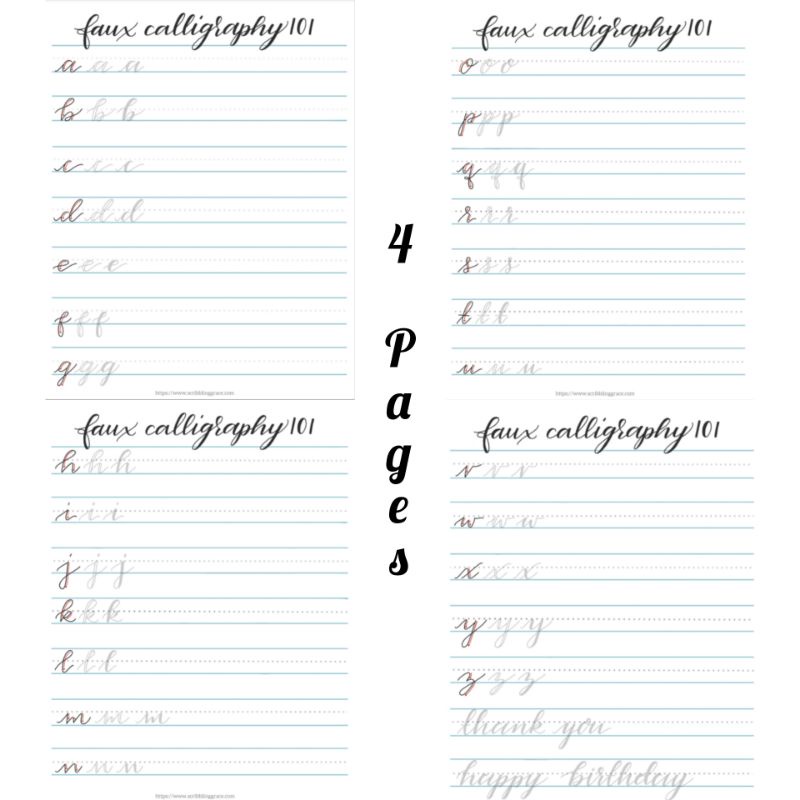 faux calligraphy 101
a a a
b b b
c c c
d d d
e e e
f f f
g g g
https://www.scribblinggrace.com
faux calligraphy 101
o o o
p p p
q q q
r r r
s s s
t t t
u u u
https://www.scribblinggrace.com
4 Pages
faux calligraphy 101
h h h
i i i
j j j
k k k
l l l
m m m
n n n
https://www.scribblinggrace.com
faux calligraphy 101
v v v
w w w
x x x
y y y
z z z
thank you
happy birthday